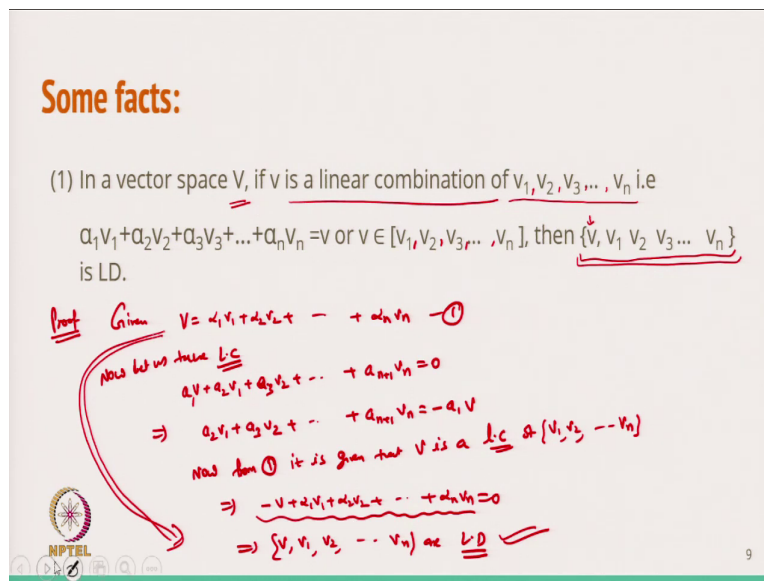 Some facts:
(1) In a vector space V, if v is a linear combination of v₁,v₂,v₃,.. , vₙ i.e
α₁v₁+α₂v₂+α₃v₃+...+αₙvₙ =v or v ∈ [v₁,v₂,v₃,.. ,vₙ ], then {v, v₁ v₂ v₃... vₙ }
is LD.
Proof Given V = α₁v₁+α₂v₂+ -- + αₙvₙ -①
Now let us take L.C
a₁v+a₂v₁+a₃v₂+ -- + aₙ₊₁vₙ=0
⇒ a₂v₁+a₃v₂+ -- + aₙ₊₁vₙ=-a₁v
Now from ① it is given that V is a l.c of {v₁,v₂, -- vₙ}
⇒ -v+α₁v₁+α₂v₂+ -- +αₙvₙ=0
⇒ {v, v₁, v₂, -- vₙ} are L.D
NPTEL
9